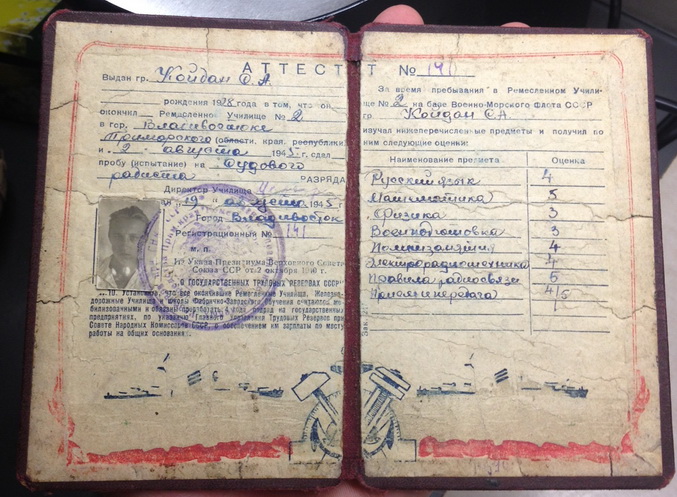 АТТЕСТАТ № 141
Выдан гр. Койдан С.А.
рождения 1928 года в том, что он
окончил Ремесленное Училище № 2
в гор. Владивостоке
Приморского (области, края, республики)
и 2 августа 1945 г. сдал
пробу (испытание) на Судового
радиста РАЗРЯДА
Директор Училища
19 1945 г.
Город Владивосток
Регистрационный № 141
м. п.
Из Указа Президиума Верховного Совета
Союза ССР от 2 октября 1940 г.
О ГОСУДАРСТВЕННЫХ ТРУДОВЫХ РЕЗЕРВАХ СССР
10. Установить, что все окончившие Ремесленные Училища, Железно-
дорожные Училища и школы Фабрично-Заводского Обучения считаются мо-
билизованными и обязаны проработать 4 года подряд на государственных
предприятиях, по указанию Главного Управления Трудовых Резервов при
Совете Народных Комиссаров СССР, с обеспечением им зарплаты по месту
работы на общих основаниях.
За время пребывания в Ремесленном Учили-
ще № 2 на базе Военно-Морского Флота СССР
гр. Койдан С.А.
изучил нижеперечисленные предметы и получил по
ним следующие оценки:
Наименование предмета Оценка
Русский язык 4
Математика 5
Физика 3
Военподготовка 3
Политзанятия 4
Электрорадиотехника 4
Правила радиосвязи 5
4/5